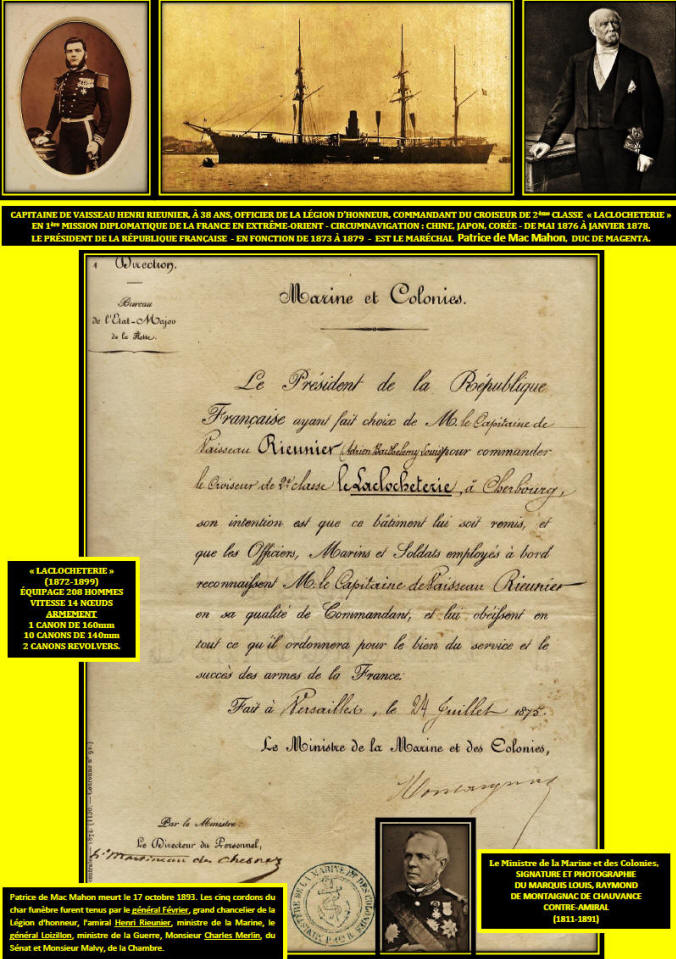 CAPITAINE DE VAISSEAU HENRI RIEUNIER, À 38 ANS, OFFICIER DE LA LÉGION D'HONNEUR, COMMANDANT DU CROISEUR DE 2ème CLASSE « LACLOCHETERIE »
EN 1ère MISSION DIPLOMATIQUE DE LA FRANCE EN EXTRÊME-ORIENT - CIRCUMNAVIGATION : CHINE, JAPON, CORÉE - DE MAI 1876 À JANVIER 1878.
LE PRÉSIDENT DE LA RÉPUBLIQUE FRANÇAISE - EN FONCTION DE 1873 À 1879 - EST LE MARÉCHAL Patrice de Mac Mahon, DUC DE MAGENTA.
1 Direction.
Bureau
de l'Etat-Major
de la flotte.
Marine et Colonies.
Le Président de la République
Française ayant fait choix de M. le Capitaine de
Vaisseau Rieunier (Adrien Barthélemy Louis) pour commander
le Croiseur de 2e classe le Laclocheterie, à Cherbourg,
son intention est que ce bâtiment lui soit remis, et
que les Officiers, Marins et Soldats employés à bord
reconnaissent M. le Capitaine de Vaisseau Rieunier
en sa qualité de Commandant, et lui obéissent en
tout ce qu'il ordonnera pour le bien du service et le
succès des armes de la France.
Fait à Versailles, le 24 Juillet 1875.
Le Ministre de la Marine et des Colonies,
Montaignac
Par le Ministre:
Le Directeur du Personnel,
Martineau des Chesnez
MARINE ET DES COLONIES
« LACLOCHETERIE »
(1872-1899)
ÉQUIPAGE 208 HOMMES
VITESSE 14 NŒUDS
ARMEMENT
1 CANON DE 160mm
10 CANONS DE 140mm
2 CANONS REVOLVERS.
Le Ministre de la Marine et des Colonies,
SIGNATURE ET PHOTOGRAPHIE
DU MARQUIS LOUIS, RAYMOND
DE MONTAIGNAC DE CHAUVANCE
CONTRE-AMIRAL
(1811-1891)
Patrice de Mac Mahon meurt le 17 octobre 1893. Les cinq cordons du
char funèbre furent tenus par le général Février, grand chancelier de la
Légion d'honneur, l'amiral Henri Rieunier, ministre de la Marine, le
général Loizillon, ministre de la Guerre, Monsieur Charles Merlin, du
Sénat et Monsieur Malvy, de la Chambre.